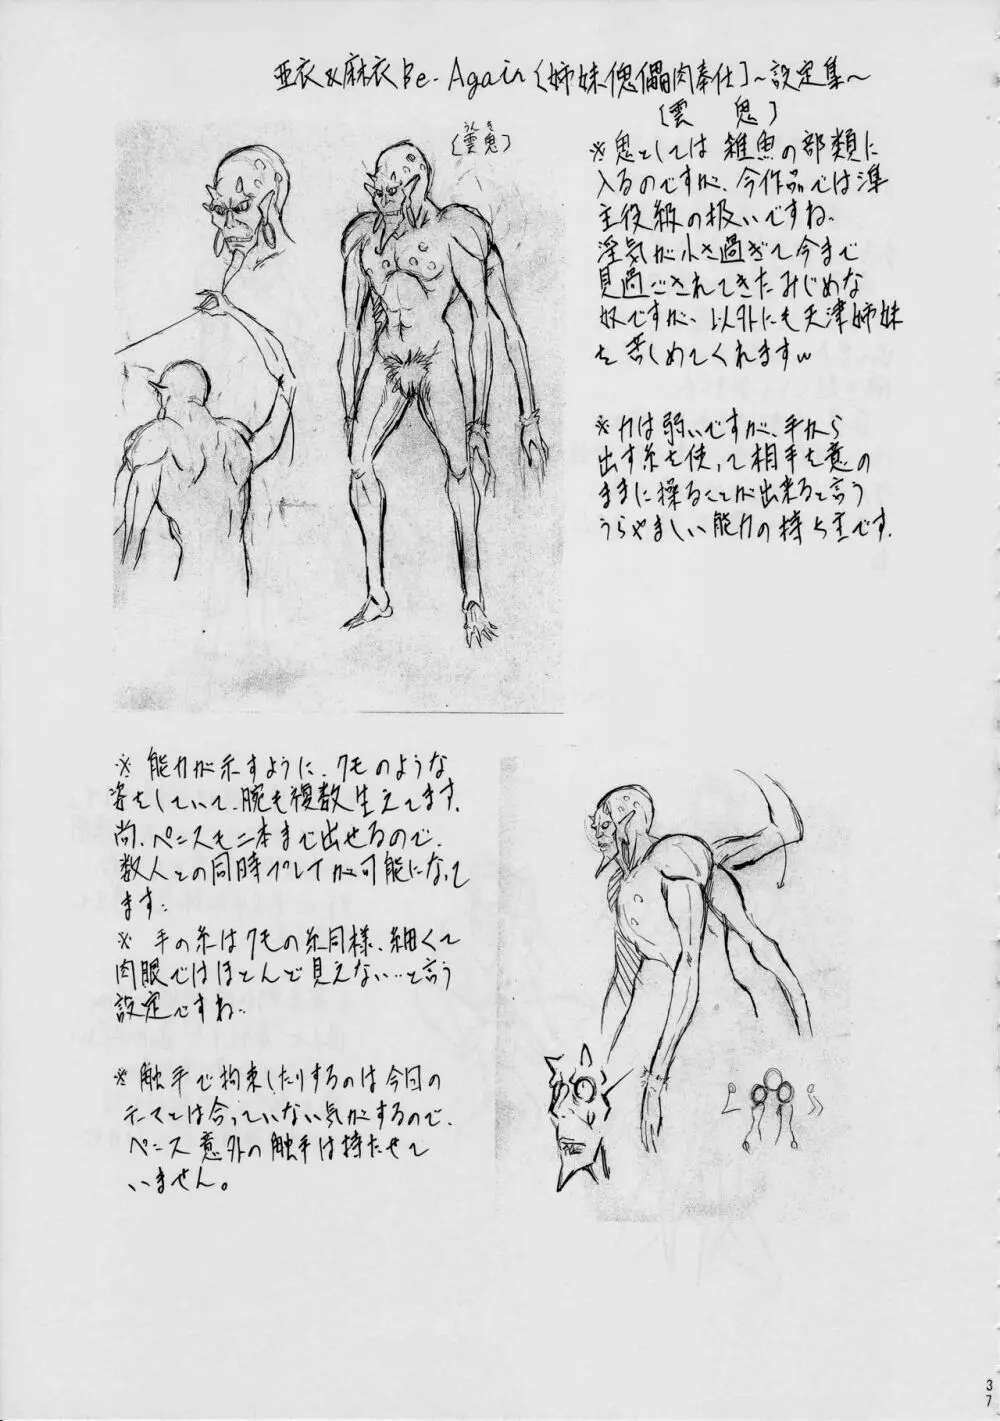 亜衣&麻衣Be-Again〔姉妹傀儡肉奉仕〕~設定集~
〔雲鬼〕
うんき
〔雲鬼〕
※鬼としては雑魚の部類に
入るのですが、今作品では準
主役級の扱いですね、
淫気が小さ過ぎて今まで
見過ごされてきたみじめな
奴ですが、以外にも天津姉妹
を苦しめてくれますw
※力は弱いですが、手から
出す糸を使って相手を意の
ままに操ることが出来ると言う
うらやましい能力の持ち主です.
※能力が示すように、クモのような
姿をしていて、腕も複数生えてます.
尚、ペニスも二本まで出せるので、
数人との同時プレイが可能になって
ます.
※手の糸はクモの糸同様、細くて
肉眼ではほとんど見えない…と言う
設定ですね..
※触手で拘束したりするのは今回の
テーマとは合っていない気がするので、
ペニス意外の触手は持たせて
いません。
37